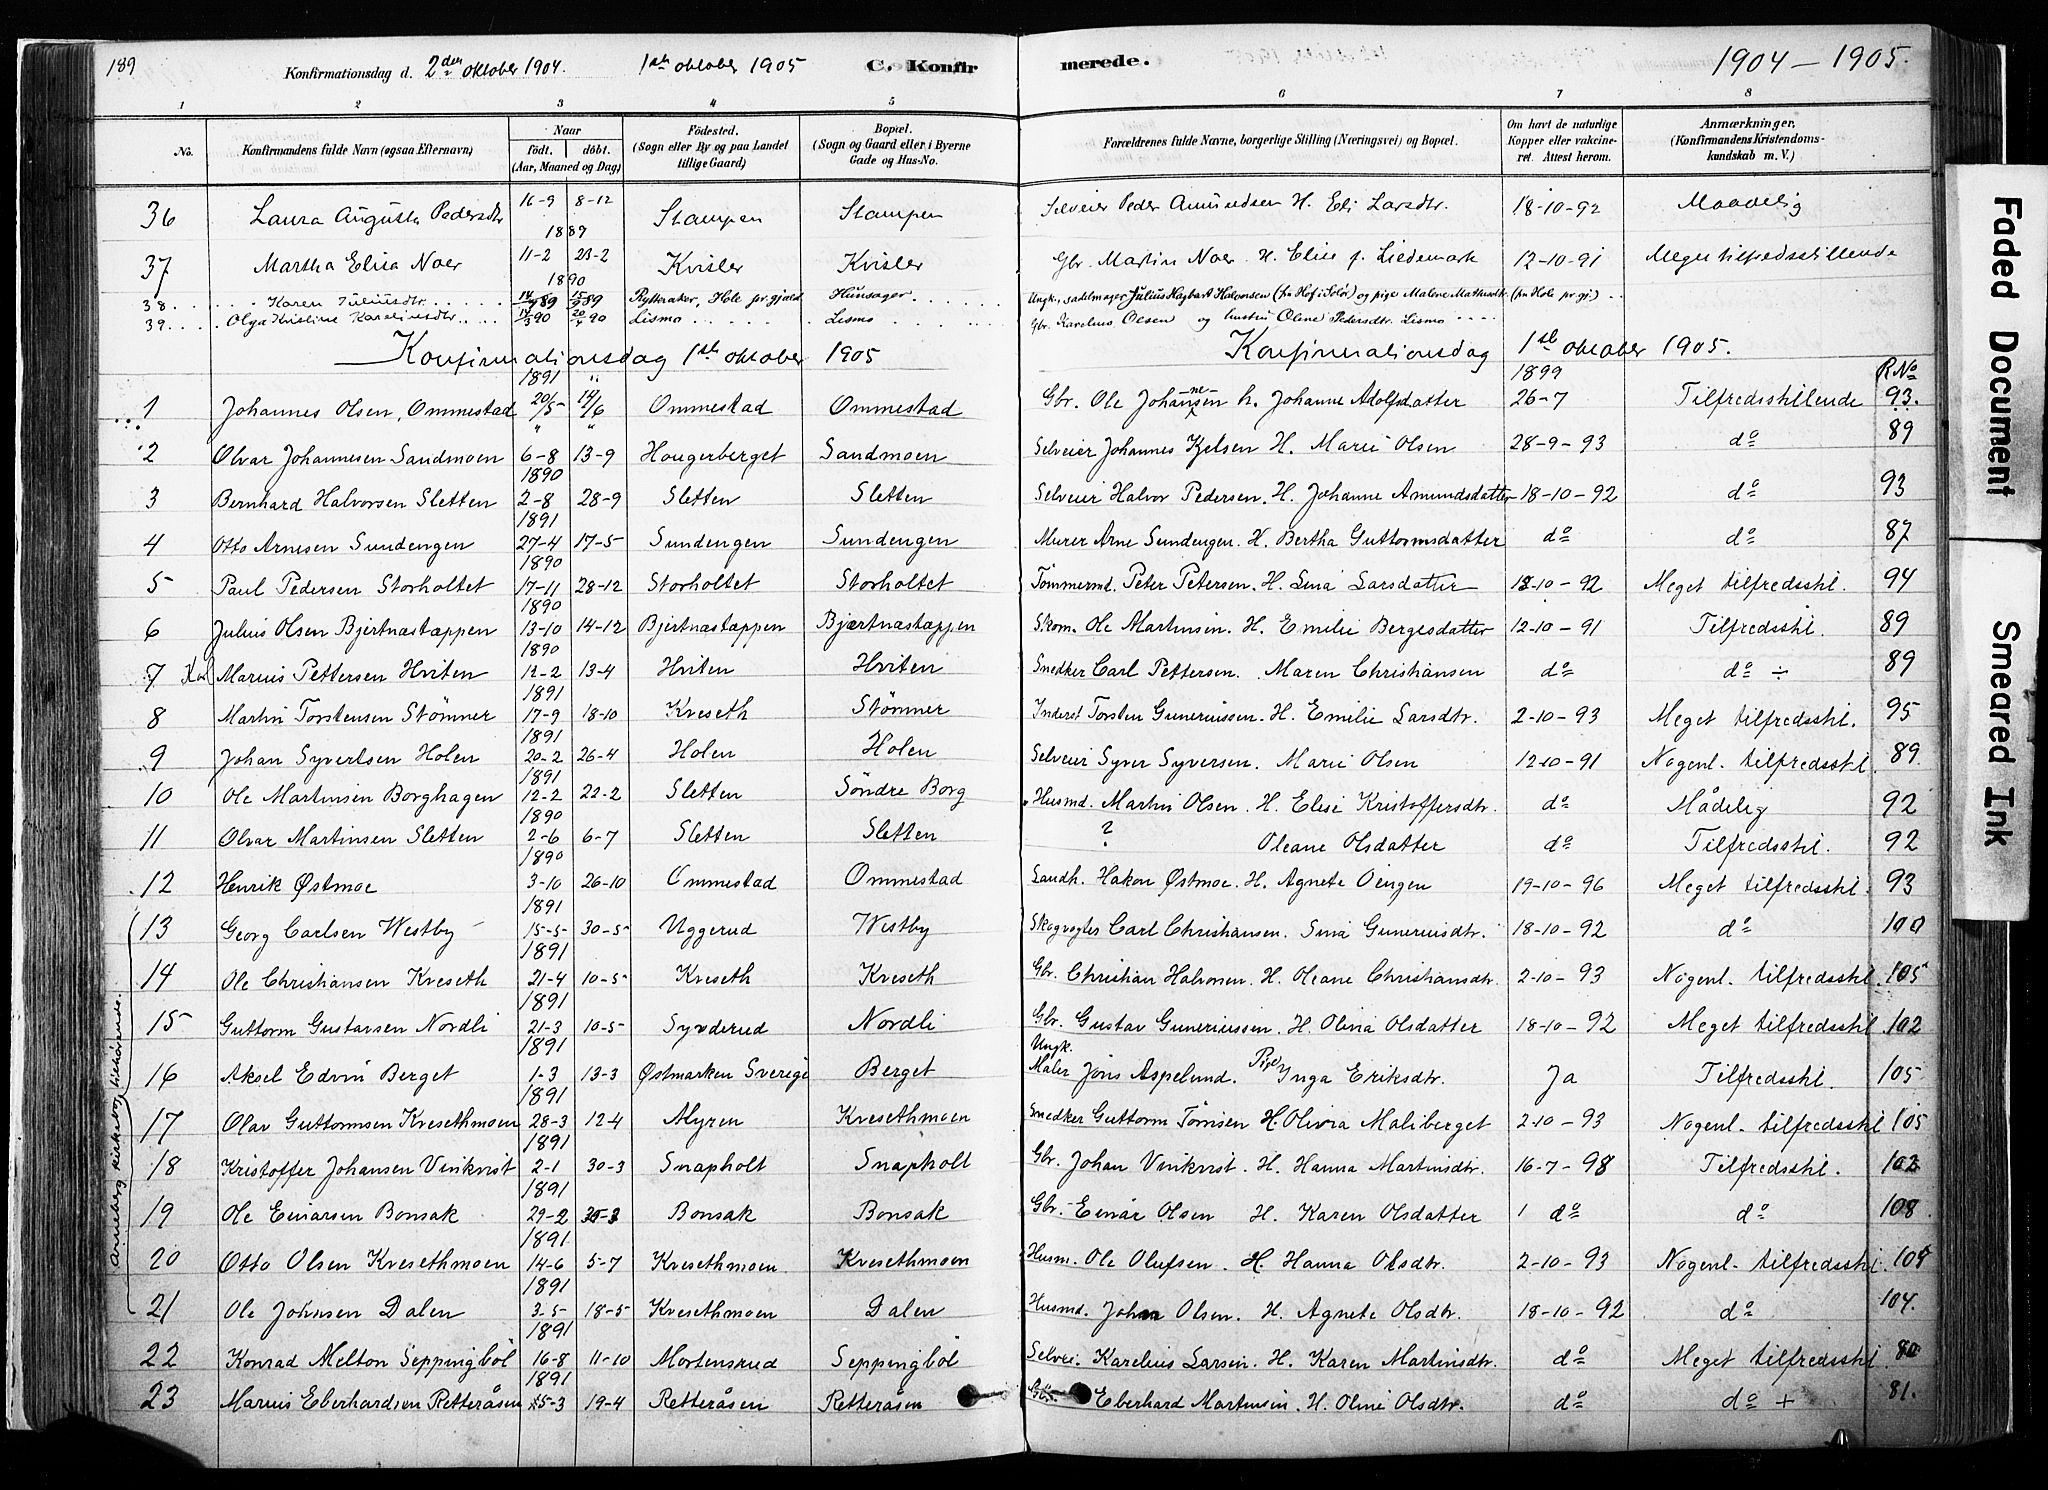 189
Konfirmationsdag d. 2den oktober 1904. 1ste oktober 1905 C. Konfirmerede. 1904 – 1905.
1 2 3 4 5 6 7 8
No. Konfirmandens fulde Navn (ogsaa Efternavn) Naar født, døbt. (Aar, Maaned og Dag) Fødested. (Sogn eller By og paa Landet tillige Gaard) Bopæl. (Sogn og Gaard eller i Byerne Gade og Hus-No. Forældrenes fulde Navne, borgerlige Stilling (Næringsvei) og Bopæl. Om havt de naturlige Kopper eller vakcineret. Attest herom. Anmærkninger, (Konfirmandens Kristendomskundskab m. V.)
36 Laura Augusta Pedersdtr 16-9 8-12 1889 Stampen Stampen Selveier Peder Amundsen H. Eli Larsdtr. 18-10-92 Maadelig
37 Martha Elisa Noer 11-2 23-2 1890 Kvisler Kvisler Gbr. Martin Noer H. Elise f. Liedemark 12-10-91 Meget tilfredsstillende
38. Karen Juliusdtr. 89 89 Rytteraker, Hole pr.gjæld Hunsager Ungk., sadelmager Julius Hagbart Halvorsen (fra Hof i Solør) og pige Malene Mathisdtr. (fra Hole pr.gj.)
39. Olga Kristine Karelinsdtr. 14/3 90 20/4 90 Lismo Lismo Gbr. Karelius Olsen og hustru Oline Pedersdtr. Lismo
Konfirmationsdag 1ste oktober 1905 Konfirmationsdag 1ste oktober 1905.
1891 " 1899 R No
1 Johannes Olsen, Ommestad 20/5 14/6 Ommestad Ommestad Gbr. Ole Johannesen h. Johanne Adolfsdatter 26-7 Tilfredsstillende 93.
" "
2 Olvar Johannesen Sandmoen 6-8 13-9 Hougerberget Sandmoen Selveier Johannes Kjelsen H. Marie Olsen 28-9-93 do 89
1890
3 Bernhard Halvorsen Sletten 2-8 28-9 Sletten Sletten Selveier Halvor Pedersen. H. Johanne Amundsdatter 18-10-92 do 93
1891
4 Otto Arnesen Sundengen 27-4 17-5 Sundengen Sundengen Murer Arne Sundengen. H. Bertha Guttormsdatter do do 87
1890
5 Paul Pedersen Storholtet 17-11 28-12 Storholtet Storholtet Tømmermd. Peter Petersen. H. Lina Larsdatter 18-10-92 Meget tilfredsstil. 94
1890
6 Julius Olsen Bjertnæstappen 13-10 14-12 Bjertnæstappen Bjærtnæstappen Skom. Ole Martinsen. H. Emilie Bergesdatter 12-10-91 Tilfredsstil. 89
1890
7 Marius Pettersen Hviten 12-2 13-4 Hviten Hviten Snedker Carl Pettersen. Maren Christiansen do do ÷ 89
1891
8 Martin Torstensen Stømner 17-9 18-10 Kveseth Stømner Inderst Torsten Guneriussen. H. Emilie Larsdtr. 2-10-93 Meget tilfredsstil. 95
1891
9 Johan Syvertsen Holen 20-2 26-4 Holen Holen Selveier Syver Syversen. Marie Olsen 12-10-91 Nogenl. tilfredsstil. 89.
1891
10 Ole Martinsen Borghagen 12-2 22-2 Sletten Søndre Borg Husmd. Martin Olsen. H. Elise Kristoffersdtr. do Mådelig 92
1890
11 Olvar Martinsen Sletten 2-6 6-7 Sletten Sletten ? Oleane Olsdatter do Tilfredsstil. 92
1890
12 Henrik Østmoe 3-10 26-10 Ommestad Ommestad Landh. Hakon Østmoe. H. Agnete Oengen 19-10-96 Meget tilfredsstil. 93
1891
13 Georg Carlsen Westby 15-5 30-5 Uggerud Westby Skogvogter Carl Christiansen. Sina Guneriusdtr. 18-10-92 do 100
1891
14 Ole Christiansen Kveseth 21-4 10-5 Kveseth Kveseth Gbr. Christian Halvorsen. H. Oleane Christiansdtr. 2-10-93 Nogenl. tilfredsstil. 105
1891
15 Guttorm Gustavsen Nordli 21-3 10-5 Syvderud Nordli Gbr. Gustav Guneriussen. H. Olina Olsdatter 18-10-92 Meget tilfredsstil. 102
1891
16 Aksel Edvin Berget 1-3 13-3 Østmarken Sverige Berget Ungk. Maler Jøns Aspelund. Pige Inga Eriksdtr. Ja Tilfredsstil. 105
1891
17 Olav Guttormsen Kvesethmoen 28-3 12-4 Myren Kvesethmoen Snedker Guttorm Tømsen H. Olivia Maliberget 2-10-93 Nogenl. tilfredsstil 105
1891
18 Kristoffer Johansen Vinkvist 2-1 30-3 Snapholt Snapholt Gbr. Johan Vinkvist. H. Hanna Martinsdtr. 16-7-98 Tilfredsstil. 102
1891
19 Ole Einarsen Bonsak 29-2 Bonsak Bonsak Gbr. Einar Olsen H. Karen Olsdatter do do 108
1891
20 Otto Olsen Kvesethmoen 14-6 5-7 Kvesethmoen Kvesethmoen Husm. Ole Olufsen. H. Hanna Olsdtr. 2-10-93 Nogenl. tilfredsstil.
1891
21 Ole Johnsen Dalen 3-5 18-5 Kvesethmoen Dalen Husmd. John Olsen. H. Agnete Olsdtr. 18-10-92 do 104.
1891
22 Konrad Melton Seppingbøl 16-8 11-10 Mortensrud Seppingbøl Selvei. Karelius Larsen. H. Karen Martinsdtr. do Meget tilfredsstil 80
1891
23 Marius Eberhardsen Retteråsen 15-3 19-4 Retteråsen Retteråsen Eberhard Martinsen. H. Oline Olsdtr. do do + 81.
Arneberg kirkesogn tilhørende.
Faded Document
Smeared Ink